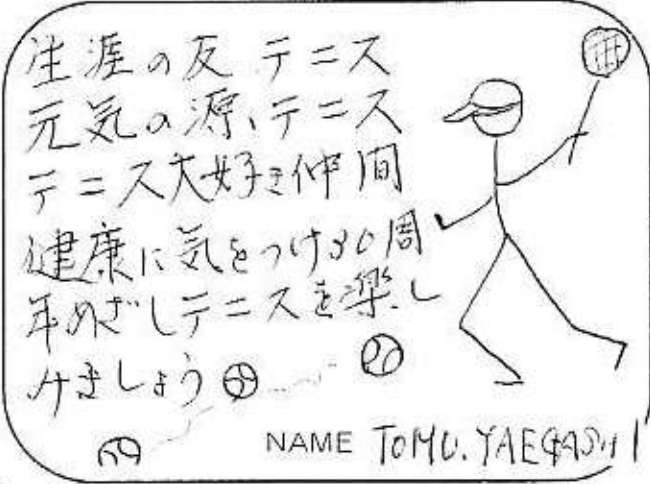 生涯の友 テニス
元気の源、テニス
テニス大好き仲間
健康に気をつけ30周
年めざしテニスを楽し
みましょう
NAME TOMU.YAEGASHI